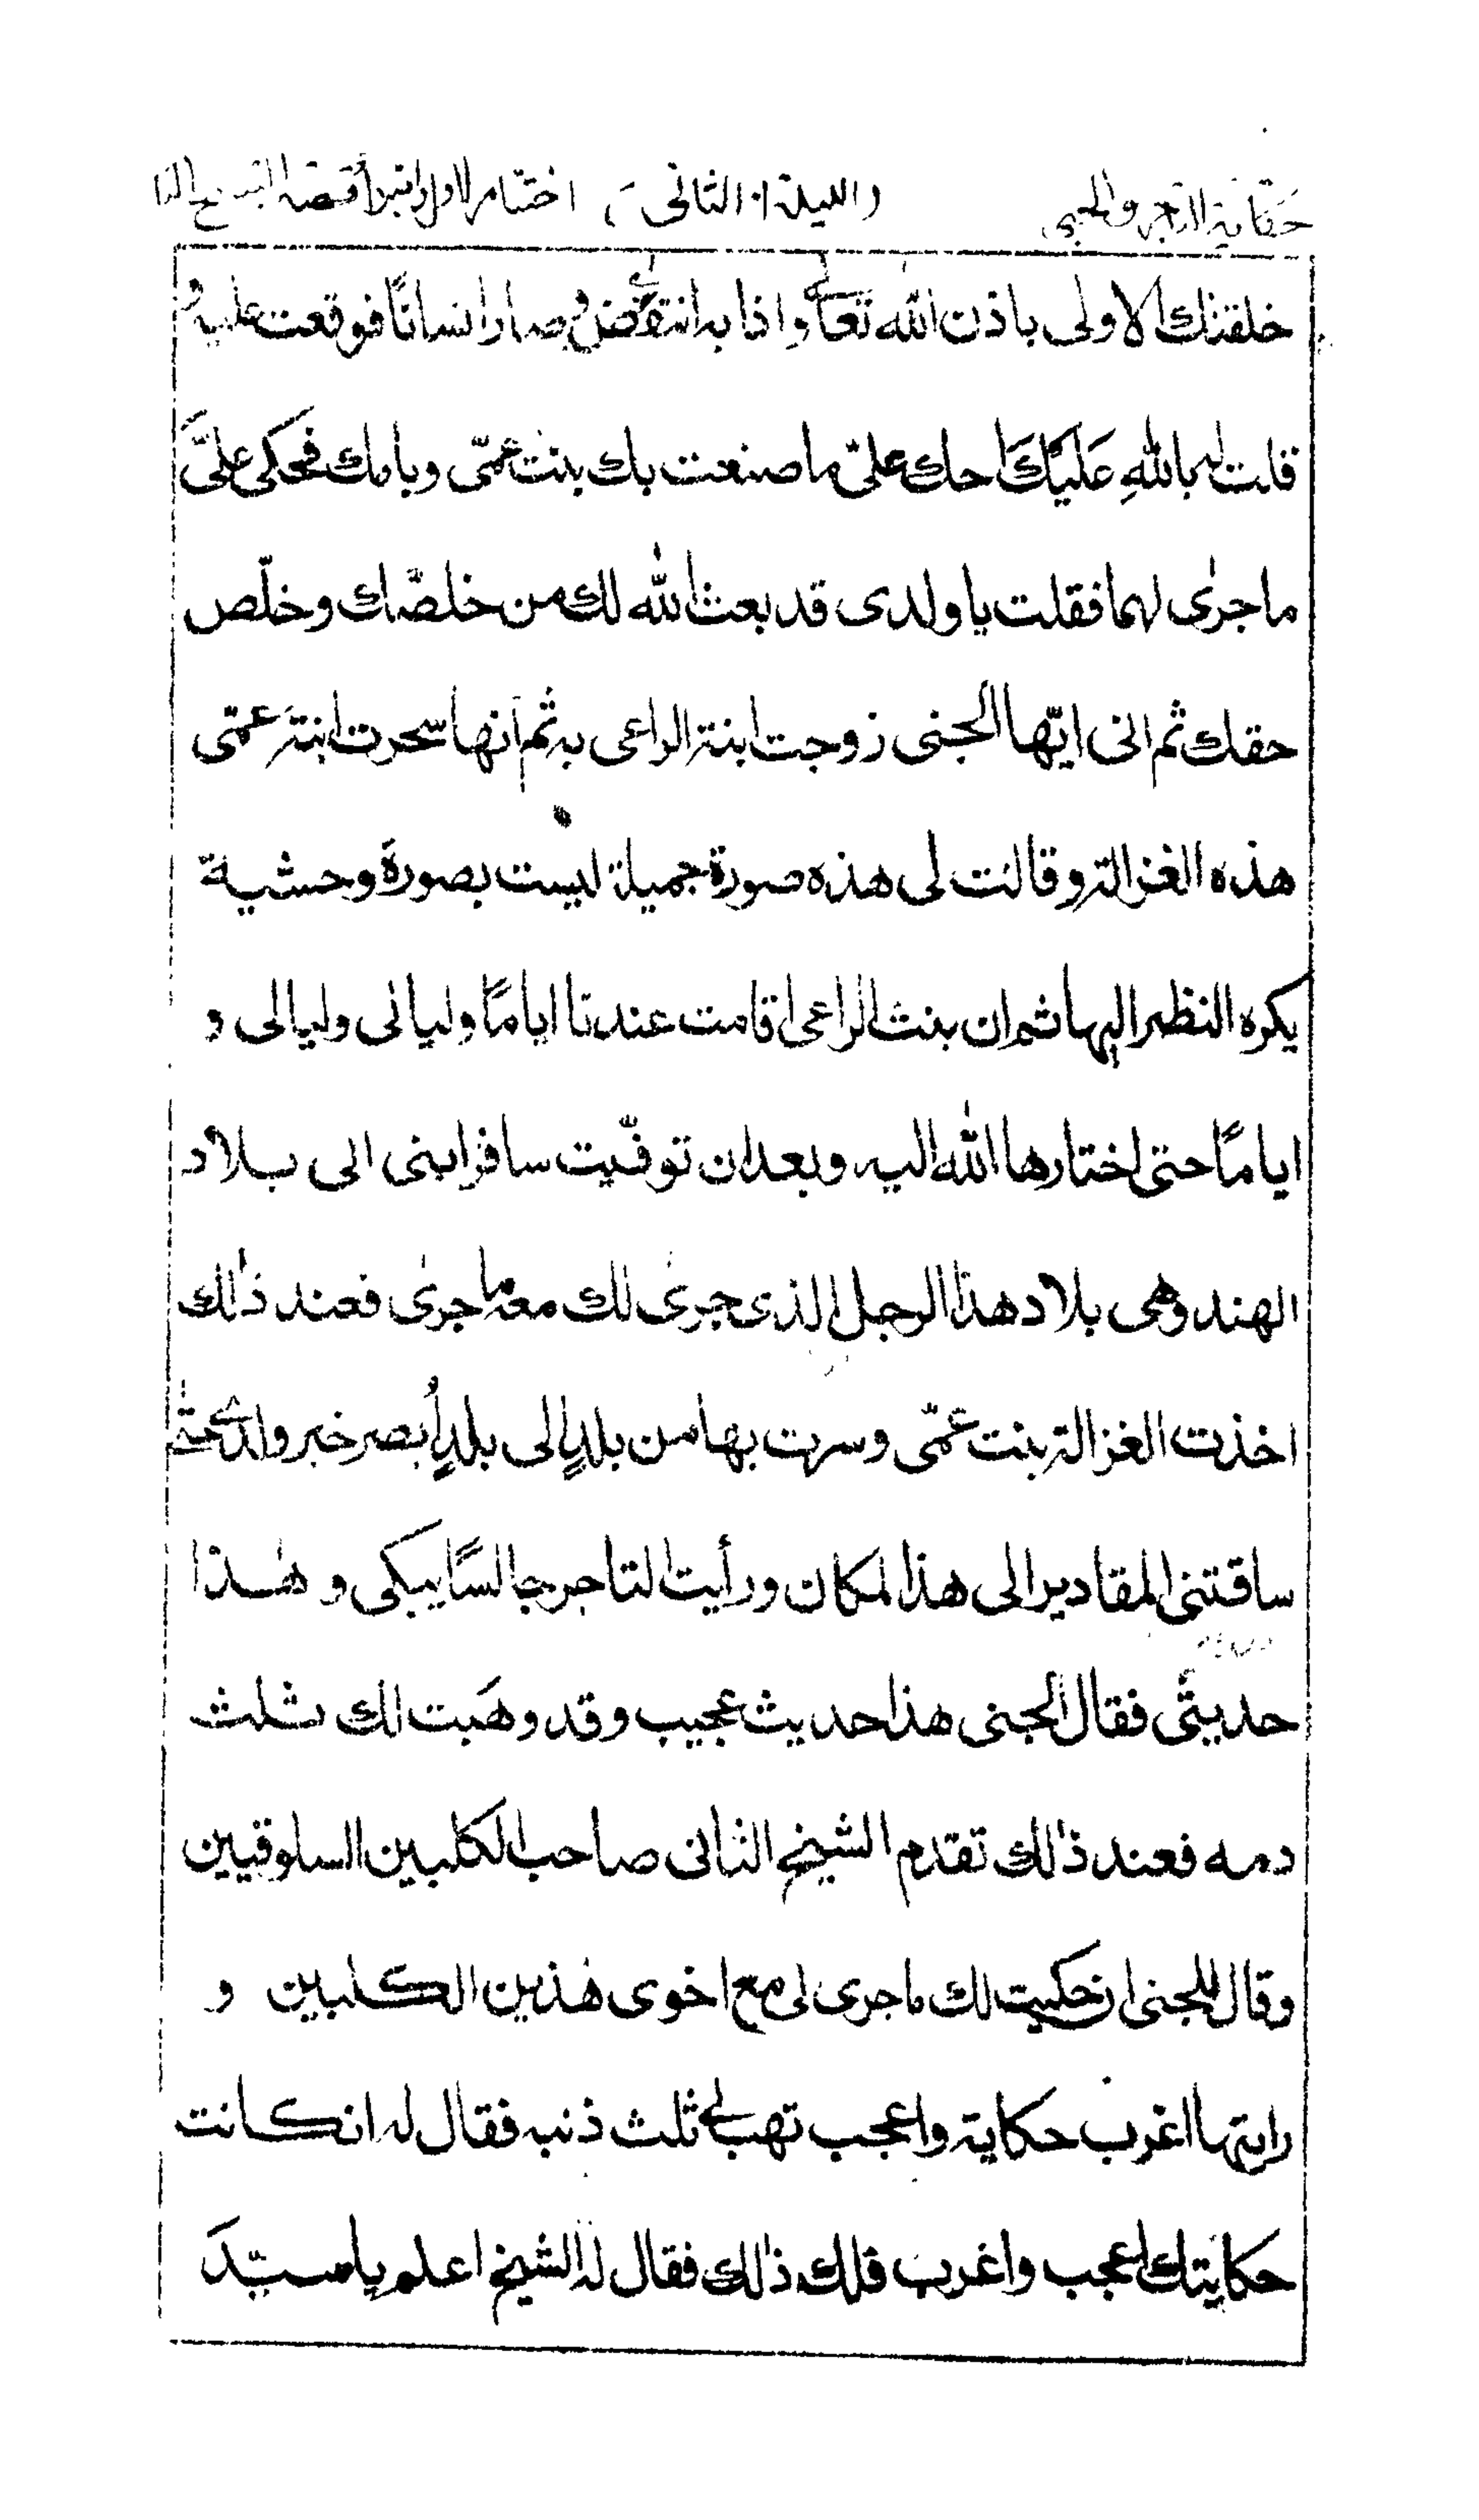 حكاية التاجر والجنى (الليلة الثانى) اختتام الاول وابتداء قصة الشيخ الثا
خلقتك الاولى باذن الله تعالى واذا به انتفض وصار انسانًا فوقعت عليه و
قلت له بالله عَلَيكَ احك علىّ ما صنعت بك بنت عمّى وبامك فحكى علىَّ
ما جرىٰ لهما فقلت يا ولدى قد بعث الله لك من خلصّك وخلّص
حقك ثم انى ايّها الجنى زوجت ابنة الراعى به ثم انها سحرت ابنة عمّى
هذه الغزالة وقالت لى هذه صورة جميلة ليست بصورة وحشية
يكره النظر اليها ثم ان بنت الراعى اقامت عندنا ايامًا وليالى وليالى و
ايامًا حتى اختارها الله اليه وبعد ان توفّيت سافر ابنى الى بلاد
الهند وهى بلاد هذا الرجل الذى جرىٰ لك معه ما جرىٰ فعند ذٰلك
اخذت الغزالة بنت عمّى وسرت بها من بلدٍ الى بلدٍ أبصر خبر ولدى حتىٰ
ساقتنى المقادير الى هذا المكان ورأيت التاجر جالسًا يبكى وهٰذا
حديثى فقال الجنى هذا حديث عجيب وقد وهَبت لك ثلث
دمه فعند ذٰلك تقدم الشيخ الثانى صاحب الكلبين السلوقيين
وقال للجنى ان حكيت لك ما جرى لى مع اخوى هٰذين الكلبين و
رايتها اغرب حكاية واعجب تهب لى ثلث ذنبه فقال له ان كانت
حكايتك اعجب واغرب فلك ذٰلك فقال له الشيخ اعلم يا سيّد